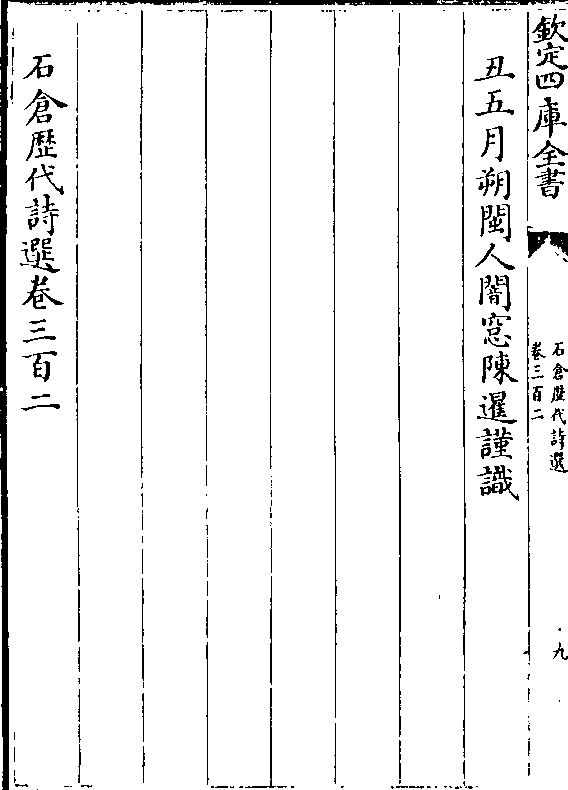 欽定四庫全書
石倉歴代詩選
卷三百二
九
丑五月朔閩人闇窓陳暹謹識
石倉歴代詩選卷三百二